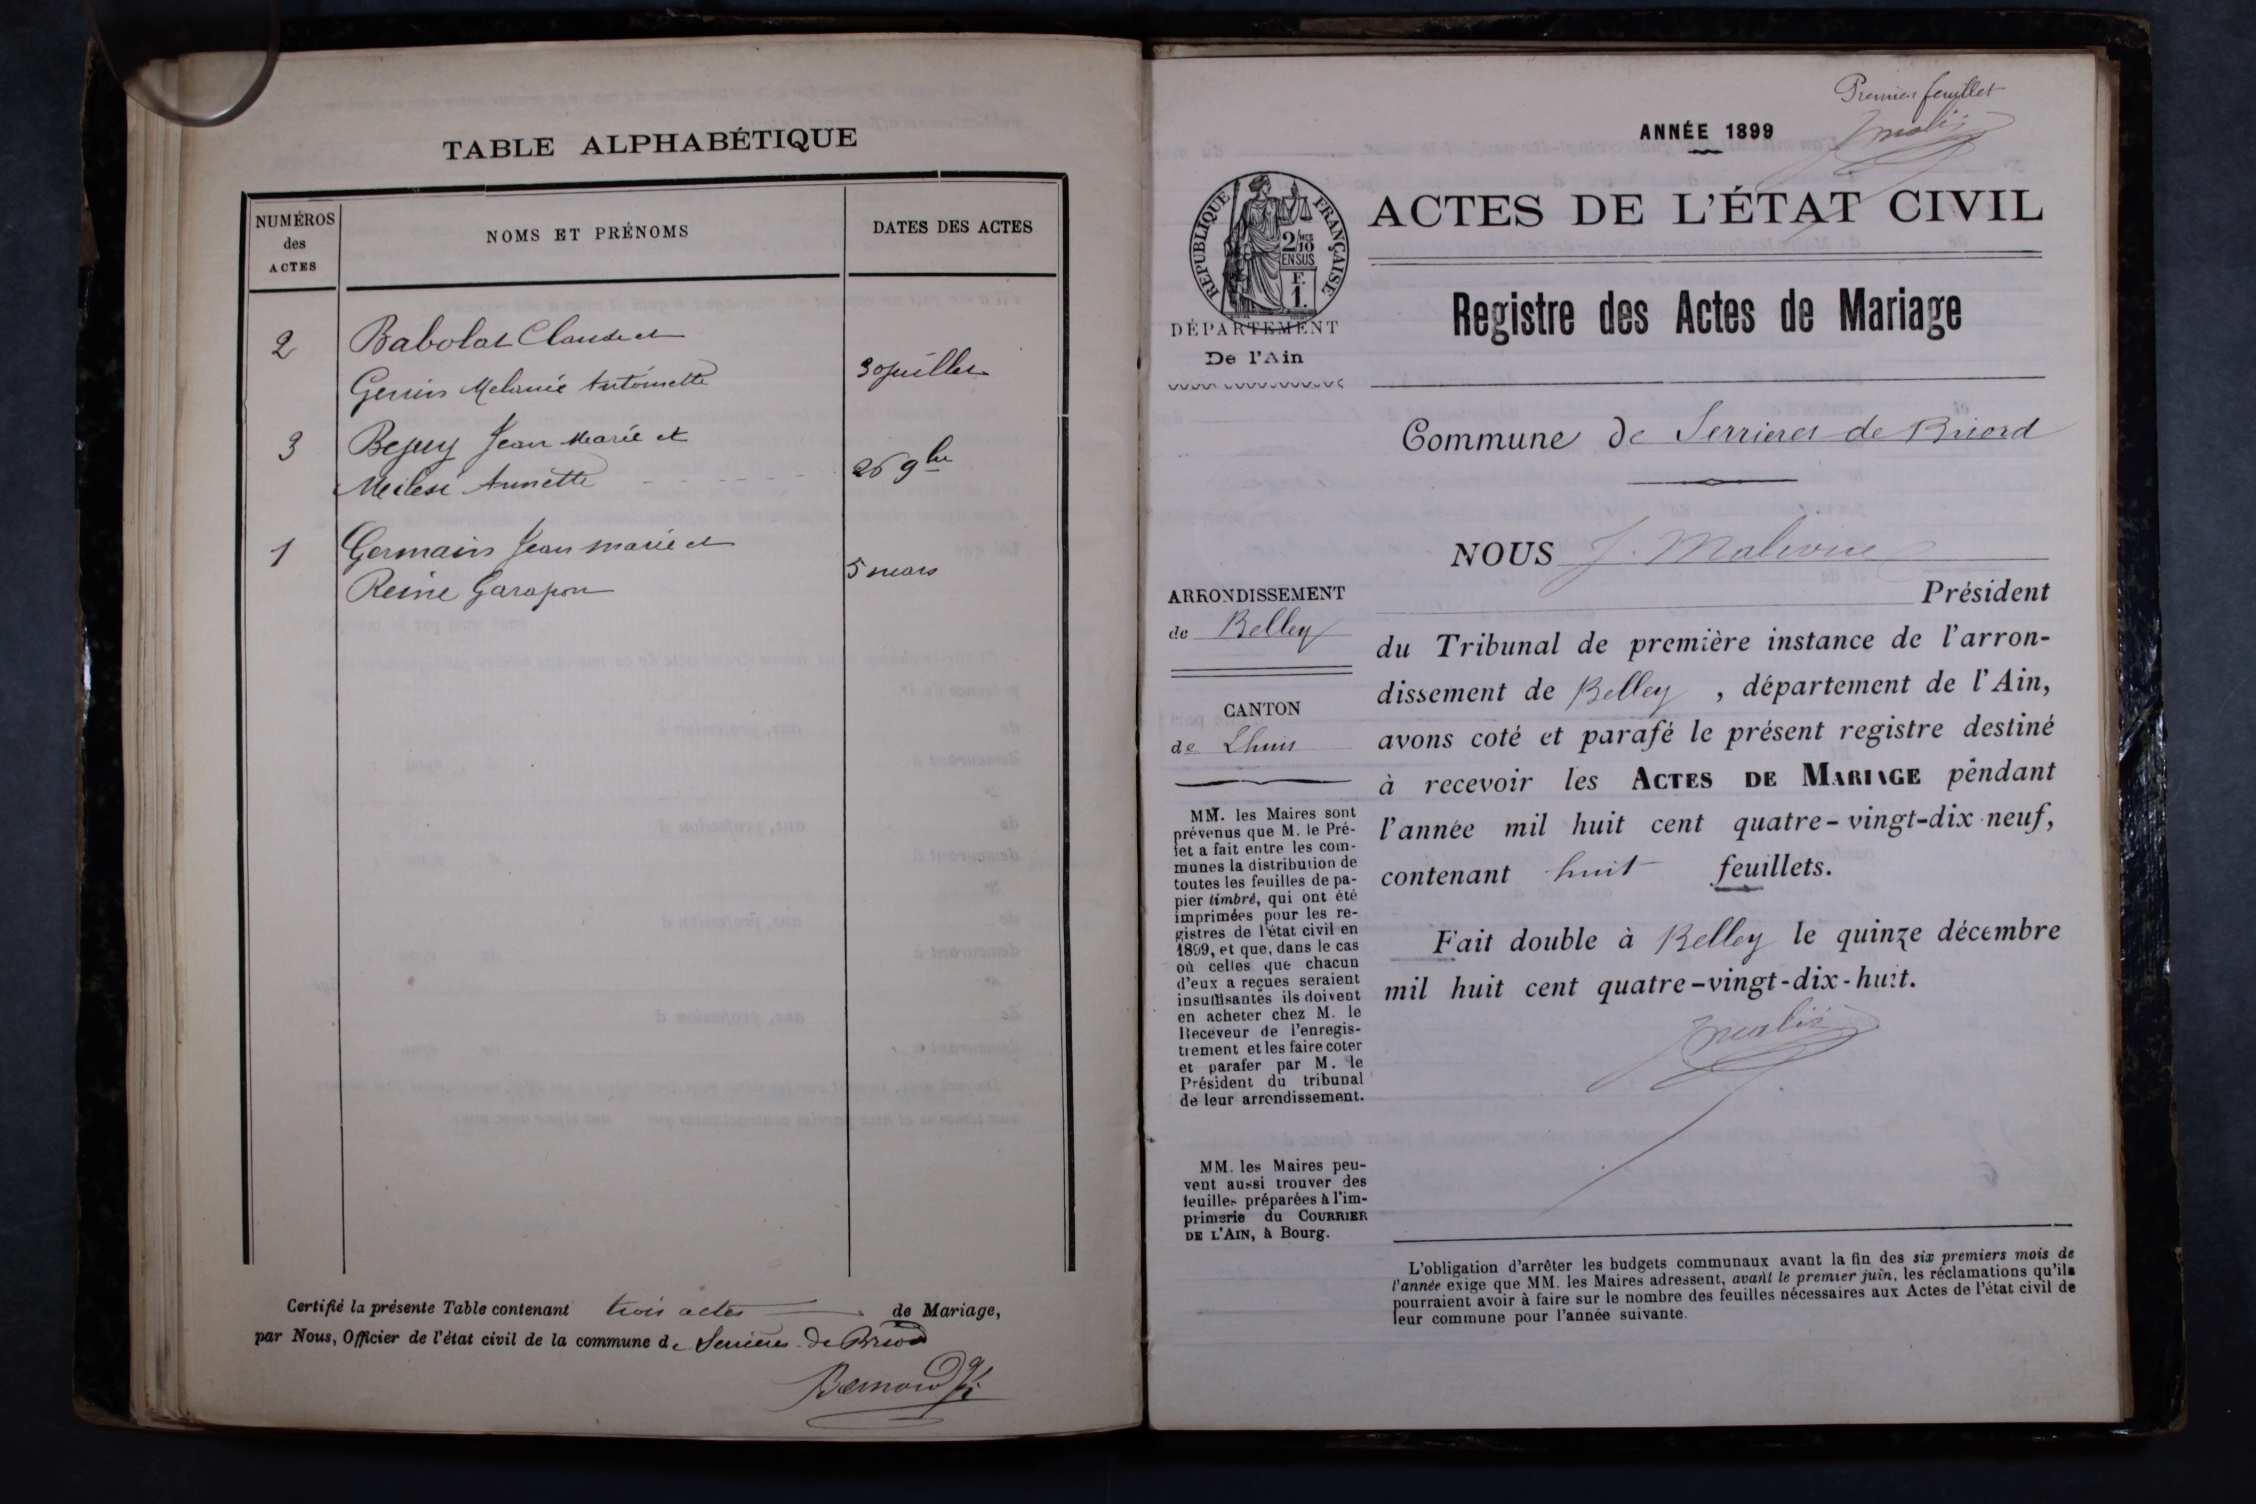 TABLE ALPHABÉTIQUE
NUMÉROS
des
ACTES
NOMS ET PRÉNOMS
DATES DES ACTES
2
Babolat Claude et
Melanie Antoinette
30 juillet
3
Jean Marie et
Annette
26 9bre
1
Germain Jean marie et
Reine Garapon
5 mars
Certifié la présente Table contenant trois actes de Mariage,
par Nous, Officier de l'état civil de la commune de Serrieres de Briord
Premier feuillet
ANNÉE 1899
ACTES DE L'ÉTAT CIVIL
RÉPUBLIQUE FRANÇAISE
2/10
EN SUS
F.
1.
DÉPARTEMENT
De l'Ain
Registre des Actes de Mariage
Commune de Serrieres de Briord
ARRONDISSEMENT
de Belley
CANTON
de Lhuis
MM. les Maires sont
prévenus que M. le Pré-
fet a fait entre les com-
munes la distribution de
toutes les feuilles de pa-
pier timbré, qui ont été
imprimées pour les re-
gistres de l'état civil en
1899, et que, dans le cas
où celles que chacun
d'eux a reçues seraient
insuffisantes ils doivent
en acheter chez M. le
Receveur de l'enregis-
trement et les faire coter
et parafer par M. le
Président du tribunal
de leur arrondissement.
MM. les Maires peu-
vent aussi trouver des
feuilles préparées à l'im-
primerie du COURRIER
DE L'AIN, à Bourg.
NOUS J.
Président
du Tribunal de première instance de l'arron-
dissement de Belley, département de l'Ain,
avons coté et parafé le présent registre destiné
à recevoir les ACTES DE MARIAGE pendant
l'année mil huit cent quatre-vingt-dix neuf,
contenant huit feuillets.
Fait double à Belley le quinze décembre
mil huit cent quatre-vingt-dix-huit.
L'obligation d'arrêter les budgets communaux avant la fin des six premiers mois de
l'année exige que MM. les Maires adressent, avant le premier juin, les réclamations qu'ils
pourraient avoir à faire sur le nombre des feuilles nécessaires aux Actes de l'état civil de
leur commune pour l'année suivante.